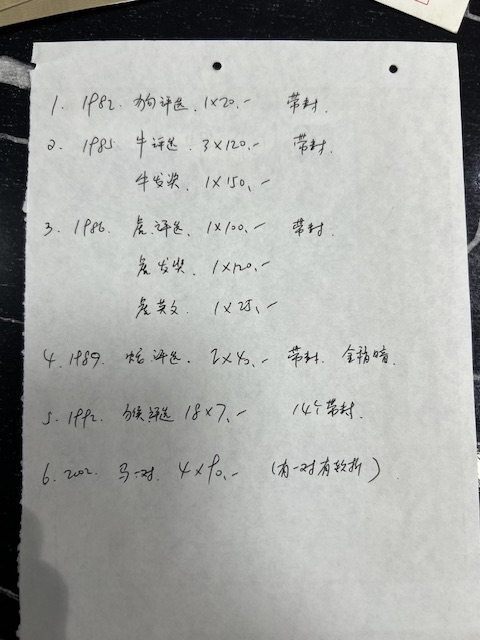 1. 1982. 狗评选. 1×20.- 带封.
2. 1985 牛评选. 3×120.- 带封.
牛发奖. 1×150.-
3. 1986. 虎评选. 1×100.- 带封.
虎发奖. 1×120.-
虎英文. 1×25.-
4. 1989. 蛇评选. 2×40.- 带封. 金精暗.
5. 1992. 猴评选 18×7.- 14个带封.
6. 2002. 马一对. 4×90.- (有一对有软折)